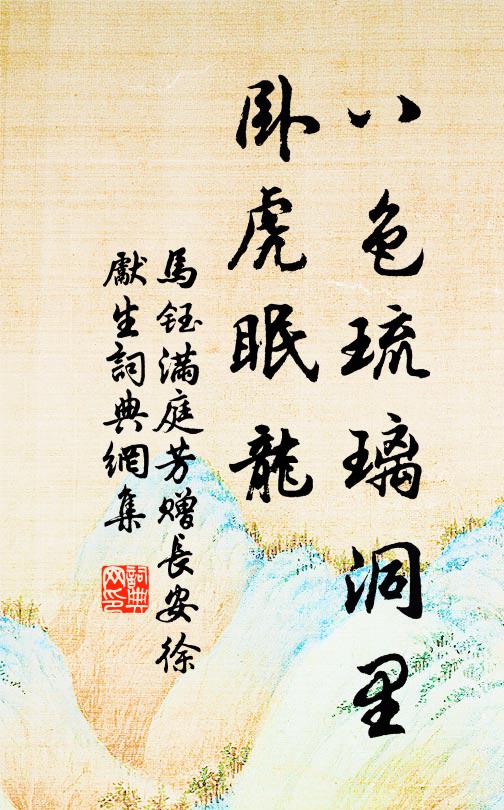 八色琉璃洞里
卧虎眠龍
馬鈺滿庭芳贈長安徐
獻生詞典網集
詞典
网印